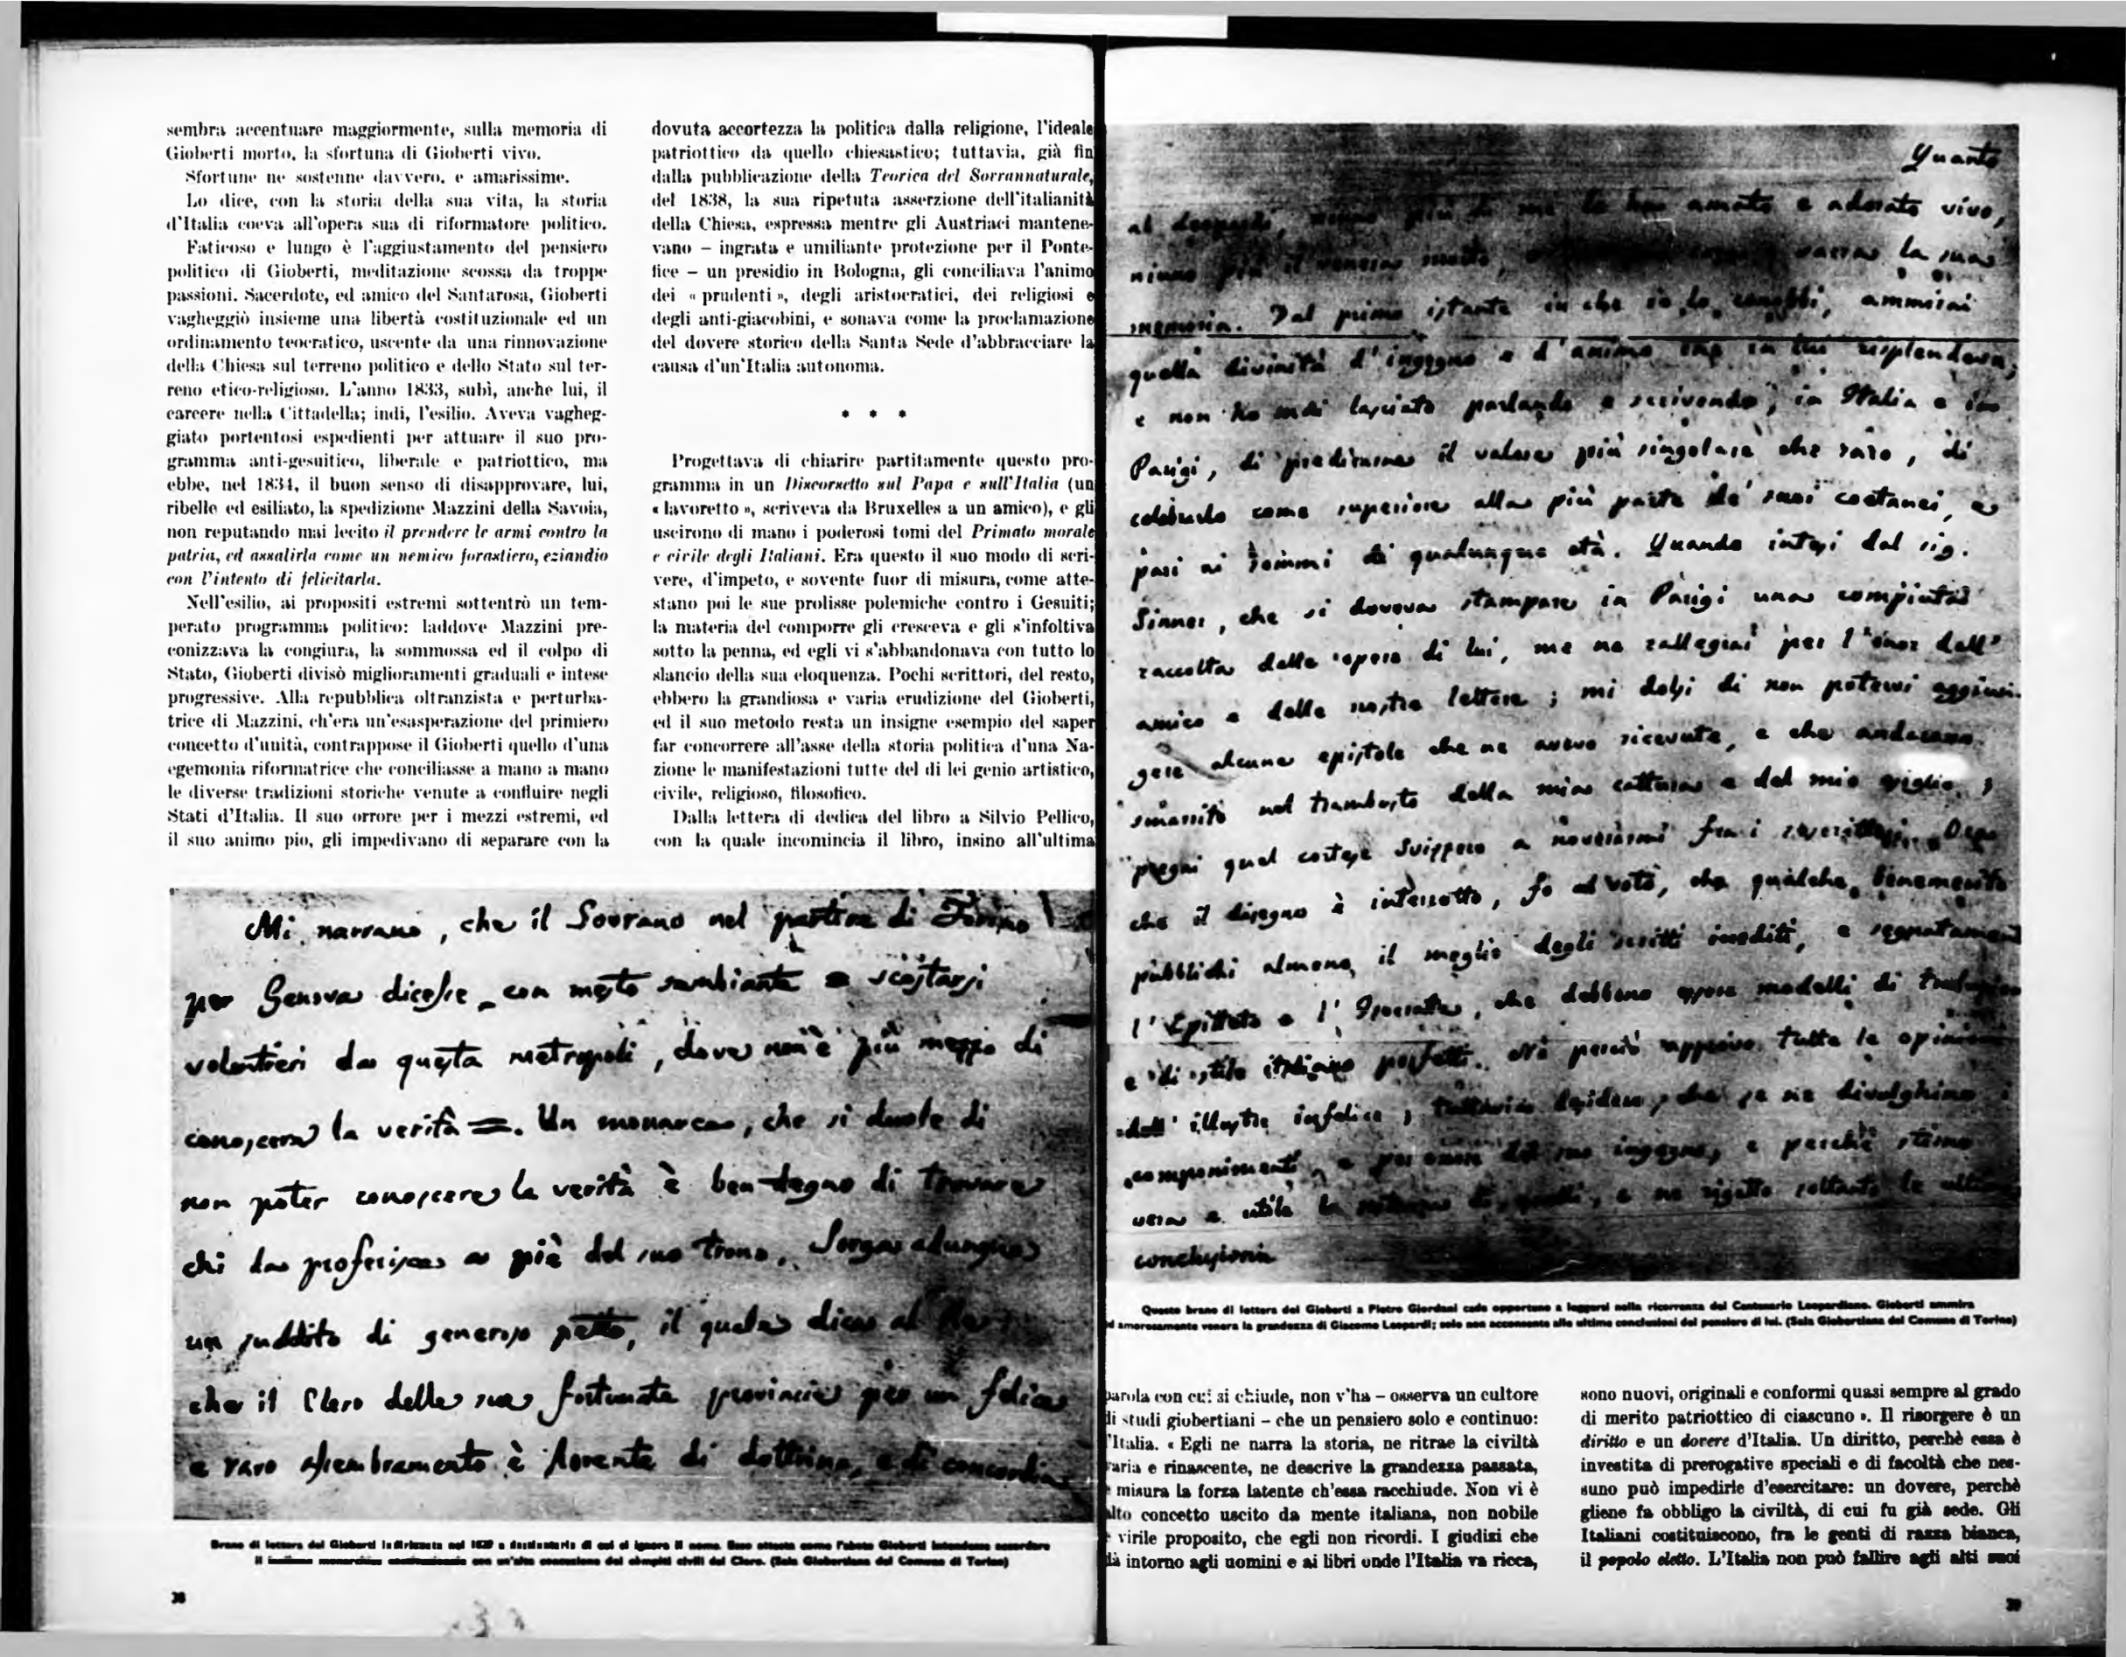 sembra accentuare maggiormente, sulla memoria di
Gioberti morto, la sfortuna di Gioberti vivo.
Sfortune ne sostenne davvero, e amarissime.
Lo dice, con la storia della sua vita, la storia
d'Italia coeva all'opera sua di riformatore politico.
Faticoso e lungo è l'aggiustamento del pensiero
politico di Gioberti, meditazione scossa da troppe
passioni. Sacerdote, ed amico del Santarosa, Gioberti
vagheggiò insieme una libertà costituzionale ed un
ordinamento teocratico, uscente da una rinnovazione
della Chiesa sul terreno politico e dello Stato sul ter-
reno etico-religioso. L'anno 1833, subì, anche lui, il
carcere nella Cittadella; indi, l'esilio. Aveva vagheg-
giato portentosi espedienti per attuare il suo pro-
gramma anti-gesuitico, liberale e patriottico, ma
ebbe, nel 1834, il buon senso di disapprovare, lui,
ribelle ed esiliato, la spedizione Mazzini della Savoia,
non reputando mai lecito il prendere le armi contro la
patria, ed assalirla come un nemico forastiero, eziandio
con l'intento di felicitarla.
Nell'esilio, ai propositi estremi sottentrò un tem-
perato programma politico: laddove Mazzini pre-
conizzava la congiura, la sommossa ed il colpo di
Stato, Gioberti divisò miglioramenti graduali e intese
progressive. Alla repubblica oltranzista e perturba-
trice di Mazzini, ch'era un'esasperazione del primiero
concetto d'unità, contrappose il Gioberti quello d'una
egemonia riformatrice che conciliasse a mano a mano
le diverse tradizioni storiche venute a confluire negli
Stati d'Italia. Il suo orrore per i mezzi estremi, ed
il suo animo pio, gli impedivano di separare con la
dovuta accortezza la politica dalla religione, l'ideale
patriottico da quello chiesastico; tuttavia, già fin
dalla pubblicazione della Teorica del Sovrannaturale,
del 1838, la sua ripetuta asserzione dell'italianità
della Chiesa, espressa mentre gli Austriaci mantene-
vano – ingrata e umiliante protezione per il Ponte-
fice – un presidio in Bologna, gli conciliava l'animo
dei « prudenti », degli aristocratici, dei religiosi e
degli anti-giacobini, e sonava come la proclamazione
del dovere storico della Santa Sede d'abbracciare la
causa d'un'Italia autonoma.
* * *
Progettava di chiarire partitamente questo pro-
gramma in un Discorsetto sul Papa e sull'Italia (un
« lavoretto », scriveva da Bruxelles a un amico), e gli
uscirono di mano i poderosi tomi del Primato morale
e civile degli Italiani. Era questo il suo modo di scri-
vere, d'impeto, e sovente fuor di misura, come atte-
stano poi le sue prolisse polemiche contro i Gesuiti;
la materia del comporre gli cresceva e gli s'infoltiva
sotto la penna, ed egli vi s'abbandonava con tutto lo
slancio della sua eloquenza. Pochi scrittori, del resto,
ebbero la grandiosa e varia erudizione del Gioberti,
ed il suo metodo resta un insigne esempio del saper
far concorrere all'asse della storia politica d'una Na-
zione le manifestazioni tutte del di lei genio artistico,
civile, religioso, filosofico.
Dalla lettera di dedica del libro a Silvio Pellico,
con la quale incomincia il libro, insino all'ultima
Mi narrano, che il Sovrano nel partire di Torino
per Genova dicesse con mesto sembiante scostarsi
volontieri da questa metropoli, dove non è più mezzo di
conoscere la verità =. Un monarca, che si duole di
non poter conoscere la verità è ben degno di trovare
chi la proferisca a piè del suo trono. Sorga adunque
un suddito di generoso petto, il quale dica al Re
che il Clero delle sue fortunate provincie per un felice
e raro assembramento è fiorente di dottrina, e di concordia
Brano di lettera del Gioberti indirizzata nel 1829 a destinatario di cui si ignora il nome. Esso attesta come l'abate Gioberti intendesse accordare
il con un'alta concezione dei compiti civili del Clero. (Sala Giobertiana del Comune di Torino)
38
Quanto
al Leopardi, niuno più di me lo ha amato e adorato vivo,
niuno più il venera morto, sacra la sua
memoria. Dal primo istante in che io lo conobbi, ammirai
quella divinità d'ingegno e d'animo che in lui risplendeva,
e non ho mai lasciato parlando e scrivendo, in Italia e in
Parigi, di predicarne il valore più singolare che raro, di
celebrarlo come superiore alla più parte de' suoi coetanei, e
pari ai sommi di qualunque età. Quando intesi dal sig.
Sinner, che si doveva stampare in Parigi una compiuta
raccolta delle opere di lui, me ne rallegrai per l'onor dell'
amico e delle nostre lettere; mi dolsi di non potervi aggiun-
gere alcune epistole che ne avevo ricevute, e che andarono
smarrite nel trambusto della mia cattura e del mio esiglio;
pregai quel cortese Svizzero a noverarmi fra i soscrittori. Ora
che il disegno è interrotto, fo al voto, che qualche benemerito
pubblichi almeno il meglio degli scritti inediti, e segnatamente
l'Epitteto e l'Isocrate, che debbono essere modelli di traduzione
e di stile italiano perfetti. Nè perciò approvo tutte le opinioni
dell'illustre infelice; tuttavia desidero, che se ne divulghino i
componimenti, e per onore del suo ingegno, e perchè stimo
vera e utile la di quelli, e ne rigetto soltanto le ultime
conclusioni
Questo brano di lettera del Gioberti a Pietro Giordani cade opportuno a leggersi nella ricorrenza del Centenario Leopardiano. Gioberti ammira
ed amorosamente venera la grandezza di Giacomo Leopardi; solo non acconsente alle ultime conclusioni del pensiero di lui. (Sala Giobertiana del Comune di Torino)
parola con cui si chiude, non v'ha – osserva un cultore
di studi giobertiani – che un pensiero solo e continuo:
l'Italia. « Egli ne narra la storia, ne ritrae la civiltà
varia e rinascente, ne descrive la grandezza passata,
e misura la forza latente ch'essa racchiude. Non vi è
alto concetto uscito da mente italiana, non nobile
e virile proposito, che egli non ricordi. I giudizi che
dà intorno agli uomini e ai libri onde l'Italia va ricca,
sono nuovi, originali e conformi quasi sempre al grado
di merito patriottico di ciascuno ». Il risorgere è un
diritto e un dovere d'Italia. Un diritto, perchè essa è
investita di prerogative speciali e di facoltà che nes-
suno può impedirle d'esercitare: un dovere, perchè
gliene fa obbligo la civiltà, di cui fu già sede. Gli
Italiani costituiscono, fra le genti di razza bianca,
il popolo eletto. L'Italia non può fallire agli alti suoi
39